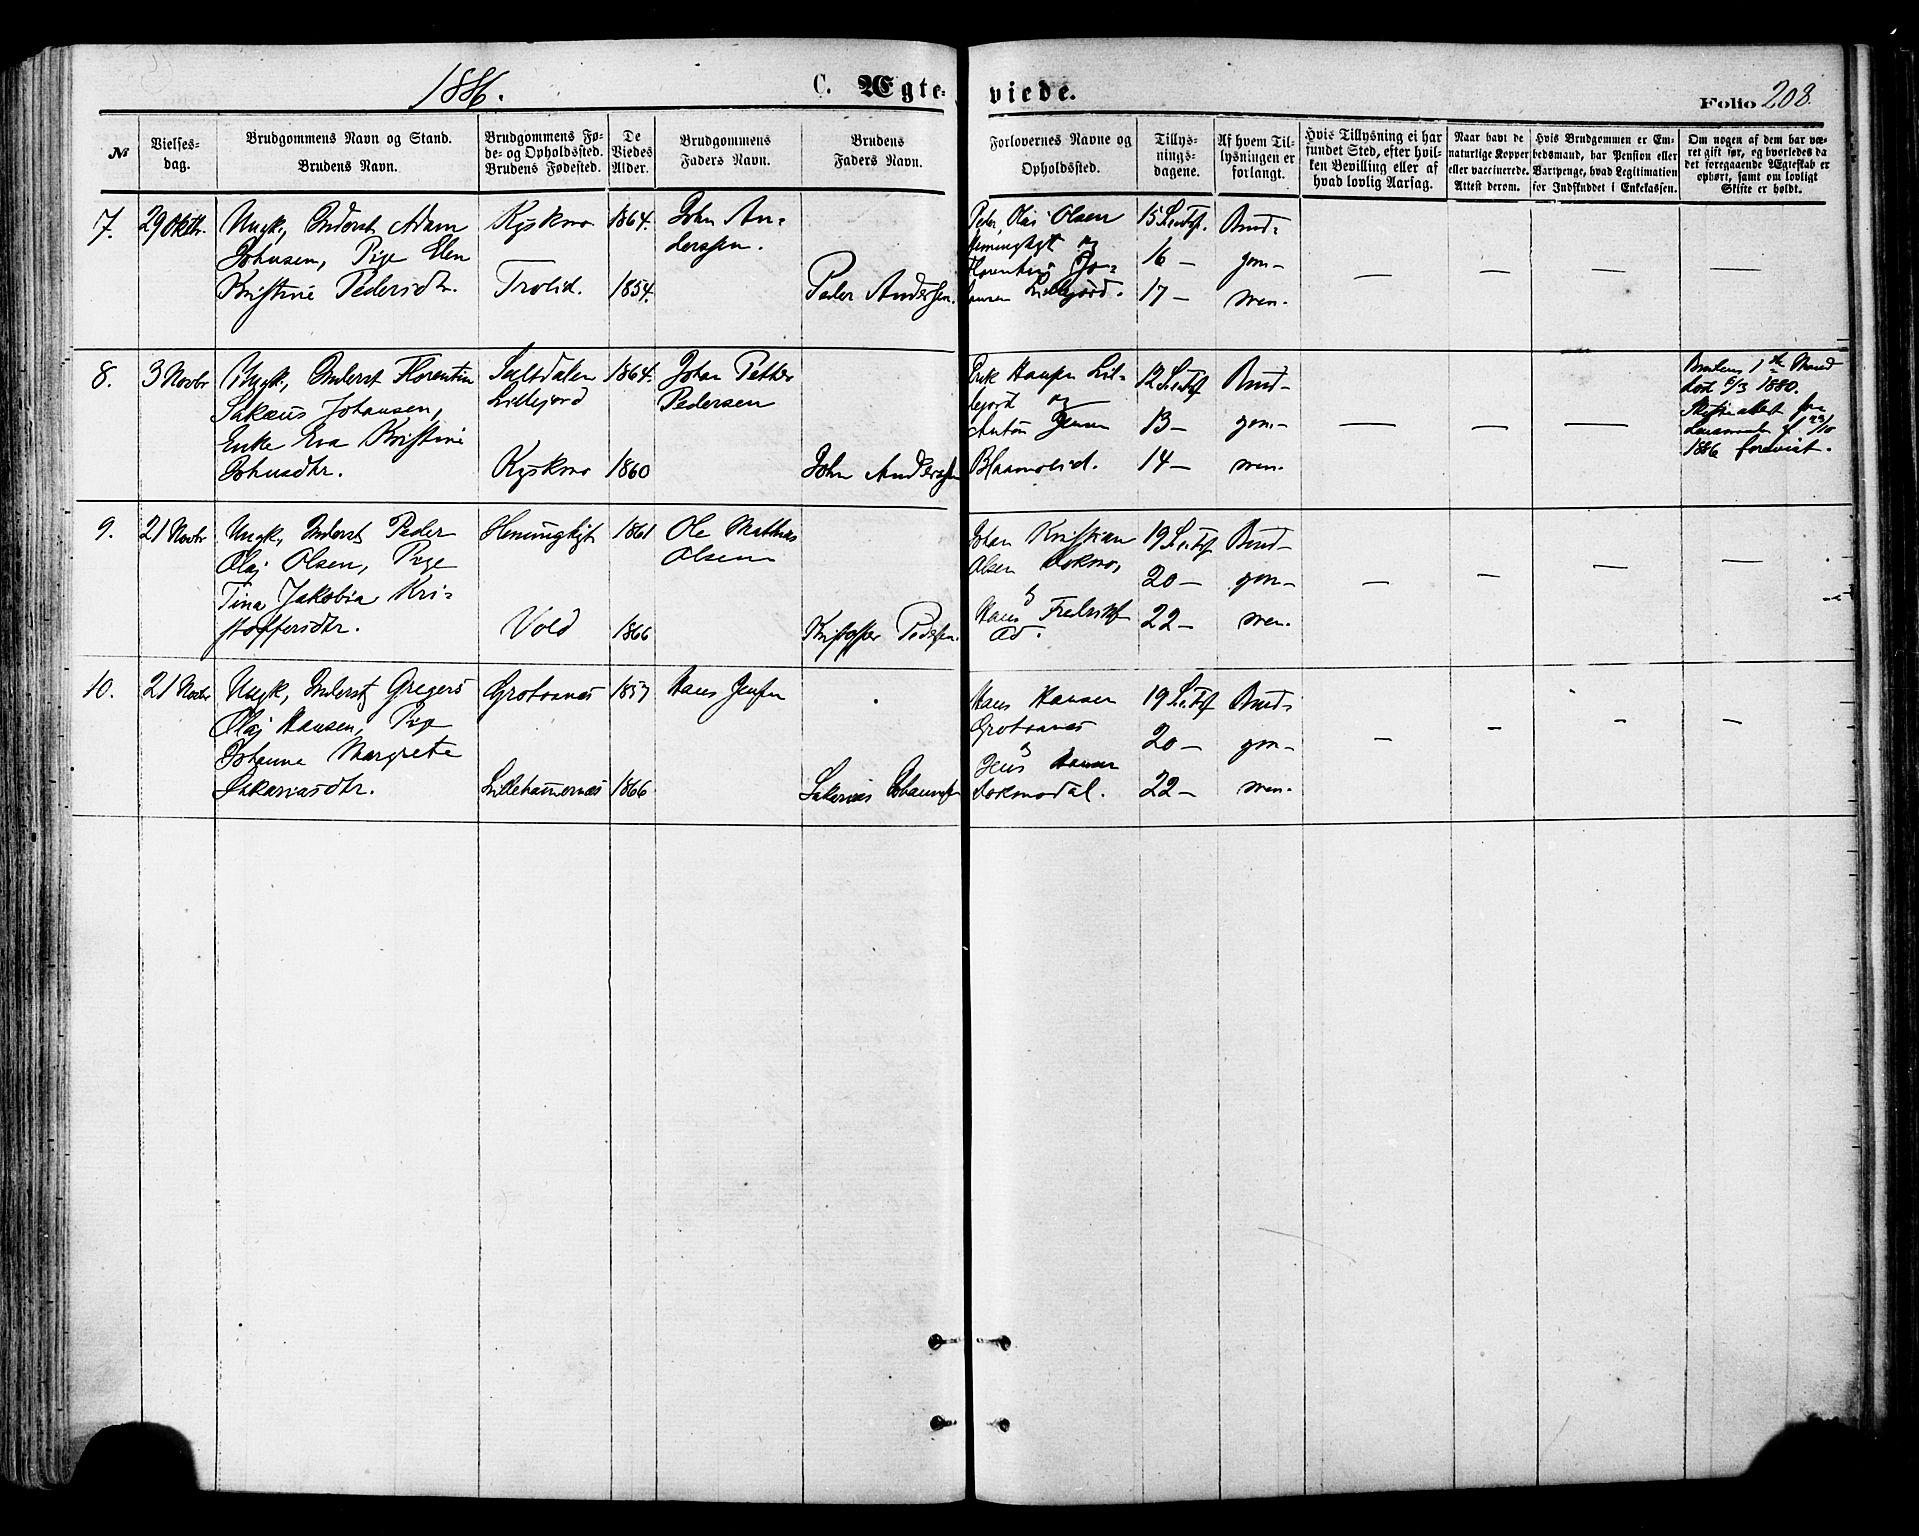 1886.
C. Ægte-
viede.
Folio 208.
№
Vielses-
dag.
Brudgommens Navn og Stand.
Brudens Navn.
Brudgommens Fø-
de- og Opholdssted.
Brudens Fødested.
De
Viedes
Alder.
Brudgommens
Faders Navn.
Brudens
Faders Navn.
Forlovernes Navne og
Opholdssted.
Tillys-
nings-
dagene.
Af hvem Til-
lysningen er
forlangt.
Hvis Tillysning ei har
fundet Sted, efter hvil-
ken Bevilling eller af
hvad lovlig Aarsag.
Naar havt de
naturlige Kopper
eller vaccinerede.
Attest derom.
Hvis Brudgommen er Em-
bedsmand, har Pension eller
Vartpenge, hvad Legitimation
for Indskuddet i Enkekassen.
Om nogen af dem har væ-
ret gift før, og hvorledes da
det foregaaende Ægteskab er
ophørt, samt om lovligt
Skifte er holdt.
7.
29 Oktbr.
Ungk, Inderst Adam
Johnsen, Pige Elen
Kristine Pedersdtr.
Kyskmo
Trolid.
1864.
1854.
John An-
derssen.
Peder Anderssen.
Peder Olai Olsen
Hemingkgt og
Florentin Jo-
hansen Lillejord.
15 Septbr.
16 —
17 —
Brud-
gom-
men.
8.
3 Novbr
Ungk, Inderst Florentin
Sakæus Johansen,
Enke Eva Kristine
Johnsdtr.
Saltdalen
Lillejord
Kyskmo
1864.
1860
Johan Petter
Pedersen
John Anderssen
Erik Hansen Lil-
lejord og
Anton Jensen
Blaamolid.
12 Septbr
13 —
14 —
Brud-
gom-
men.
Brudens 1ste Mand
død 6/3 1880.
Skifteattest fra
Lensmanden f. 23/10
1886 forevist.
9.
21 Novbr
Ungk, Inderst Peder
Olaj Olsen, Pige
Tina Jakobia Kri-
stoffersdtr.
Hemingkgt
Vold
1861
1866
Ole Mathias
Olsen
Kristoffer Pedersen.
Johan Kristian
Olsen Dokmo,
og
Hans Fredriksen
19 Septbr
20 —
22 —
Brud-
gom-
men.
10.
21 Novbr
Ungk, Inderst Gregers
Olaj Hansen, Pige
Johanna Margrete
Sakariasdtr.
Grotnanes
Lillehamernæs
1857
1866
Hans Jensen
Sakarias Johannessen
Hans Hansen
Grotnanes
og
Jens Hansen
Dokmodal.
19 Septbr
20 —
22 —
Brud-
gom-
men.